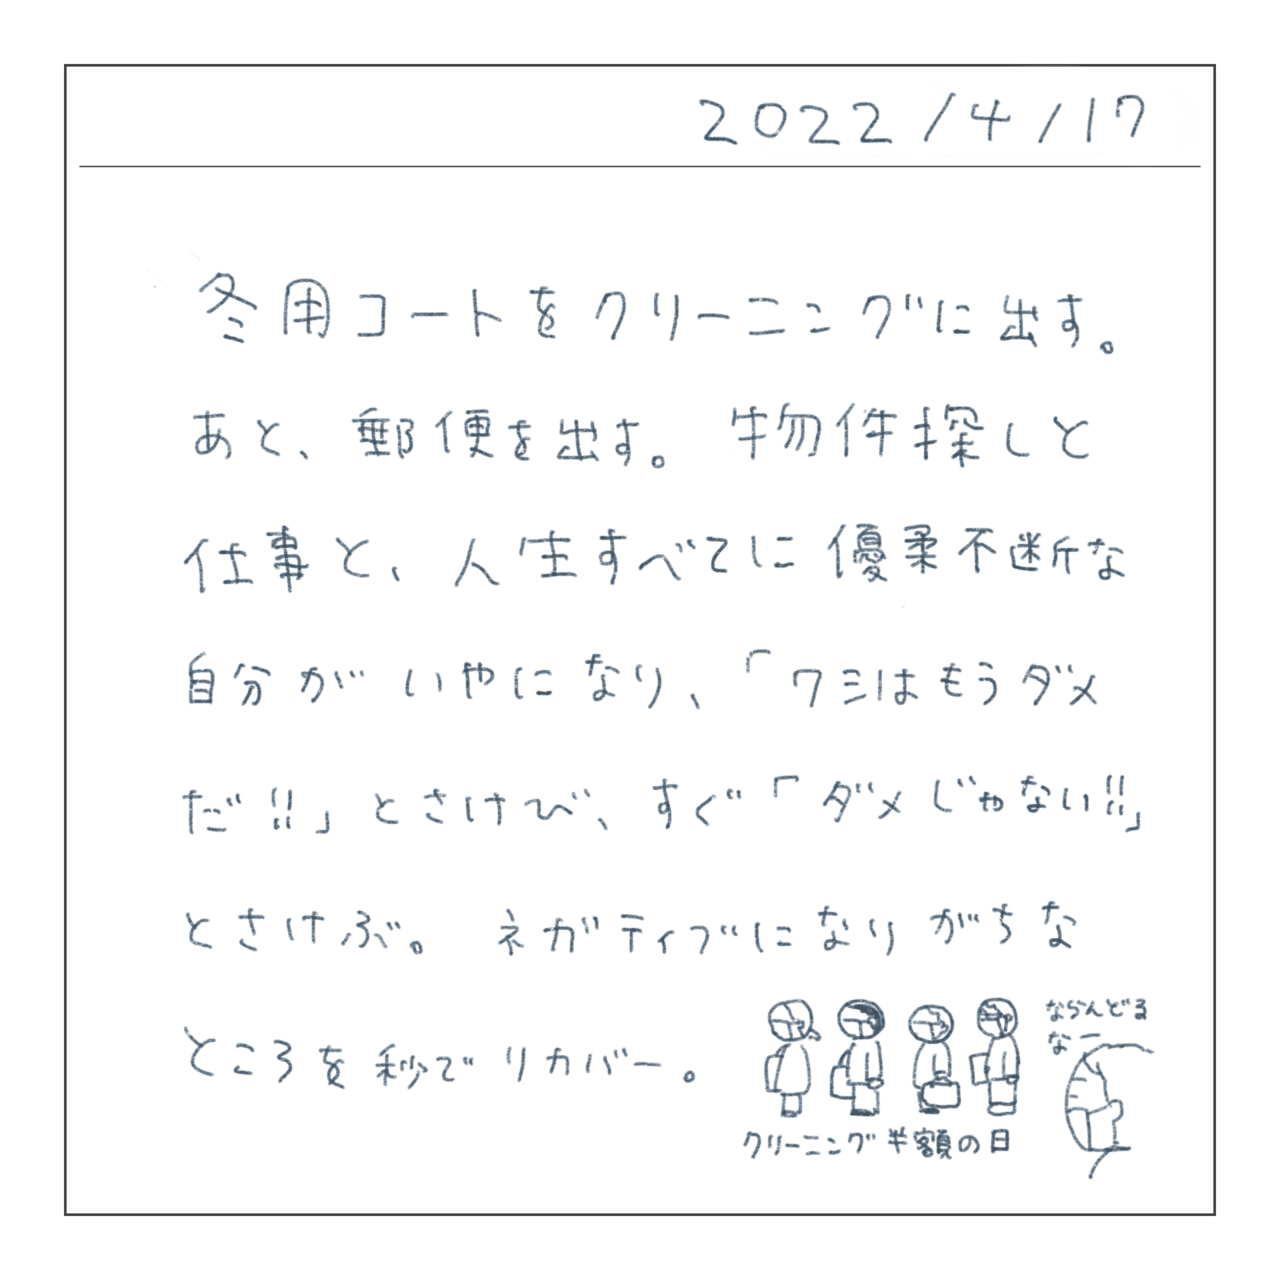 2022/4/17
冬用コートをクリーニングに出す。
あと、郵便を出す。 物件探しと
仕事と、人生すべてに優柔不断な
自分がいやになり、「ワシはもうダメ
だ!!」とさけび、すぐ「ダメじゃない!!」
とさけぶ。 ネガティブになりがちな
ところを秒でリカバー。
ならんどる
なー
クリーニング半額の日